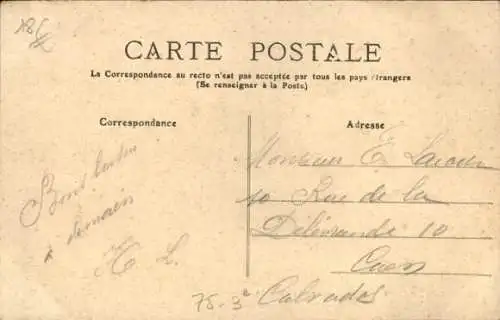 CARTE POSTALE
La Correspondance au recto n'est pas acceptée par tous les pays étrangers
(Se renseigner à la Poste.)
Correspondance
Adresse
Monsieur E
10 Rue de la
Délivrande 10
Caen
Calvados
à demain
75-3e